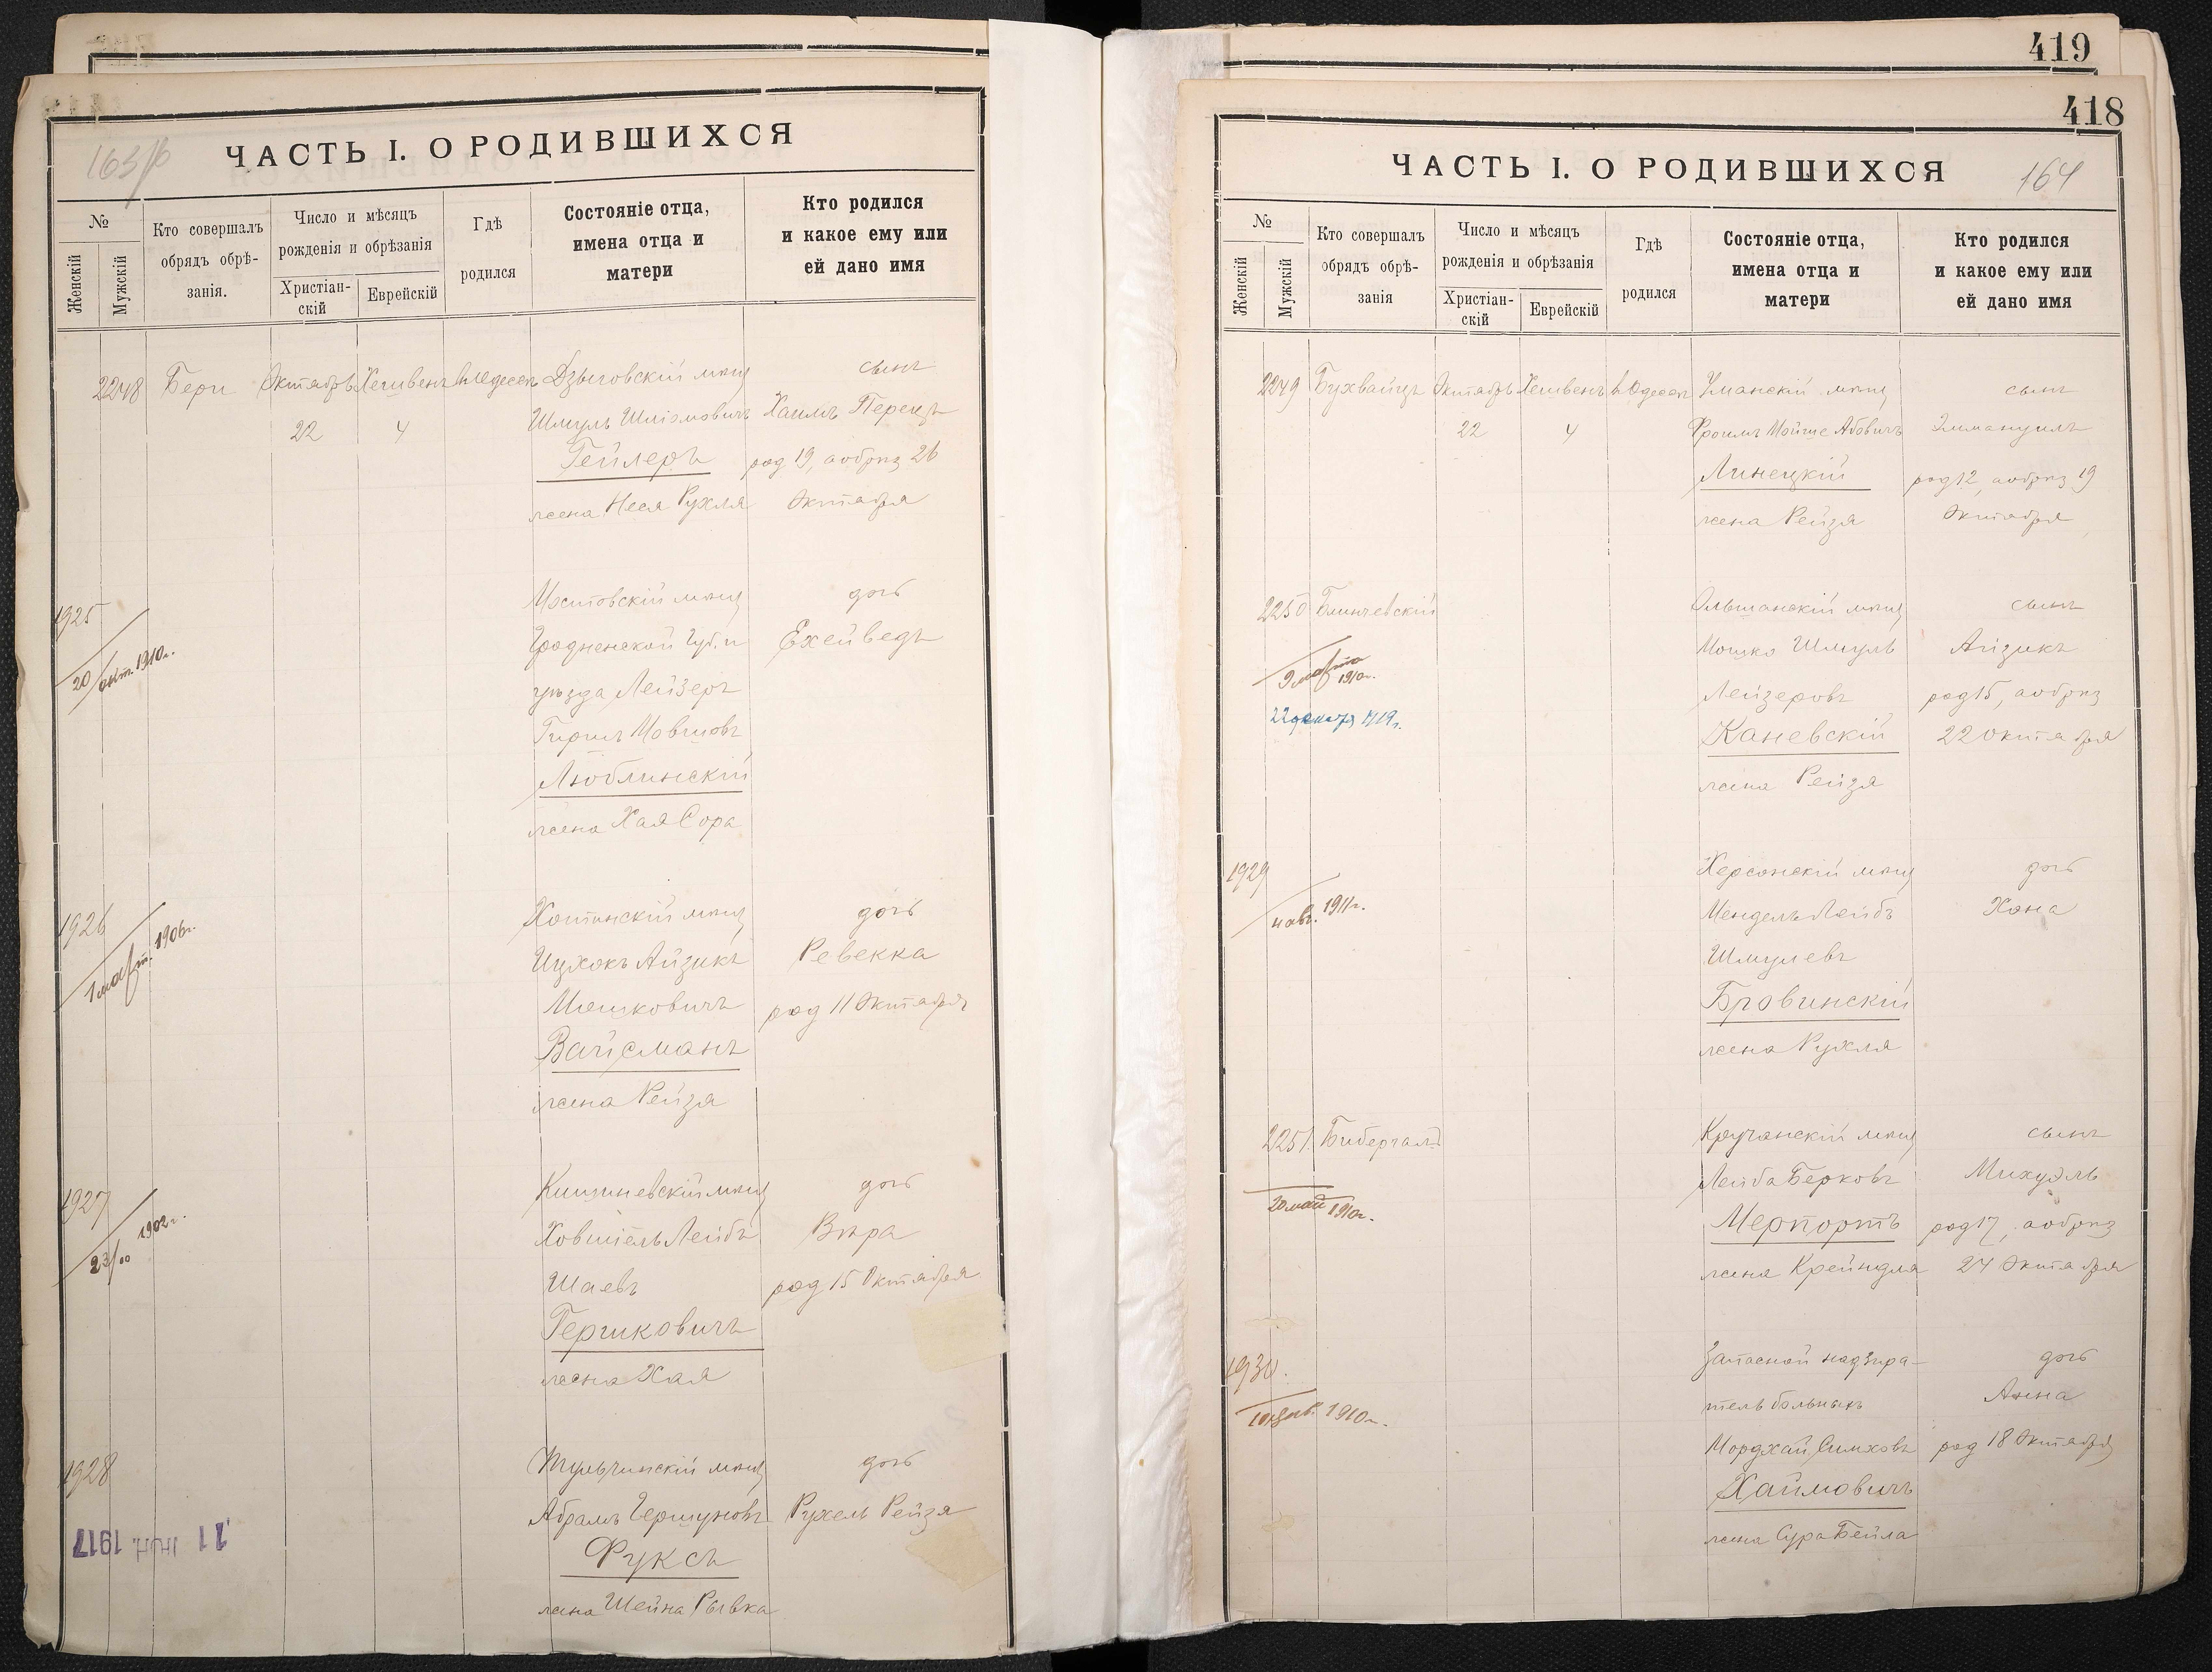 419
418
163/б
ЧАСТЬ I. О РОДИВШИХСЯ
№
Женскій
Мужскій
Кто совершалъ
обрядъ обрѣ-
занія.
Число и мѣсяцъ
рожденія и обрѣзанія
Христіан-
скій
Еврейскій
Гдѣ
родился
Состояніе отца,
имена отца и
матери
Кто родился
и какое ему или
ей дано имя
2248 Бери Октябрь Хешвенъ въ Одессѣ Дзыговскій мѣщ сынъ
22 4 Шмуль Шліомовичъ Хаимъ Перецъ
Гейлеръ род 19, а обрѣз 26
жена Неся Рухля Октября
1925 Мостовскій мѣщ дочь
20 окт. 1910 г. Гродненской Губ. и Ехейведъ
уѣзда Лейзеръ
Гиршъ Мовшовъ
Люблинскій
жена Хая Сора
1926 Хотинскій мѣщ дочь
1 март. 1906 г. Ицхокъ Айзикъ Ревекка
Мошковичъ род 11 Октября
Вайсманъ
жена Рейзя
1927 Кишиневскій мѣщ дочь
1902 г. Ховшіель Лейбъ Вѣра
Шаевъ род 15 Октября
Гершковичъ
жена Хая
1928 Тульчинскій мѣщ дочь
Абрамъ Гершуновъ Рухель Рейзя
11 ІЮН. 1917
Фуксъ
жена Шейна Рывка
ЧАСТЬ I. О РОДИВШИХСЯ
164
№
Женскій
Мужскій
Кто совершалъ
обрядъ обрѣ-
занія
Число и мѣсяцъ
рожденія и обрѣзанія
Христіан-
скій
Еврейскій
Гдѣ
родился
Состояніе отца,
имена отца и
матери
Кто родился
и какое ему или
ей дано имя
2249 Бухвайцъ Октябрь Хешвенъ въ Одессѣ Уманскій мѣщ сынъ
22 4 Фроимъ Мойше Абовичъ Эммануилъ
Линецкій род 12, а обрѣз 19
жена Рейзя Октября
2250 Блинчевскій Ольшанскій мѣщ сынъ
9 марта 1910 г. Мошко Шмуль Айзикъ
22 декабря 1919 г. Лейзеровъ род 15, а обрѣз
Каневскій 22 Октября
жена Рейзя
1929 Херсонскій мѣщ дочь
4 авг. 1911 г. Мендель Лейбъ Хана
Шмулевъ
Бровинскій
жена Рухля
2251 Бибергалъ Кручанскій мѣщ сынъ
20 май 1910 г. Лейба Берковъ Михуэль
Мерпортъ род 17, а обрѣз
жена Крейндля 24 Октября
1930. Запасной надзира- дочь
1910 г. тель больныхъ Анна
Мордхай Симховъ род 18 Октября
Хаймовичъ
жена Сура Бейла